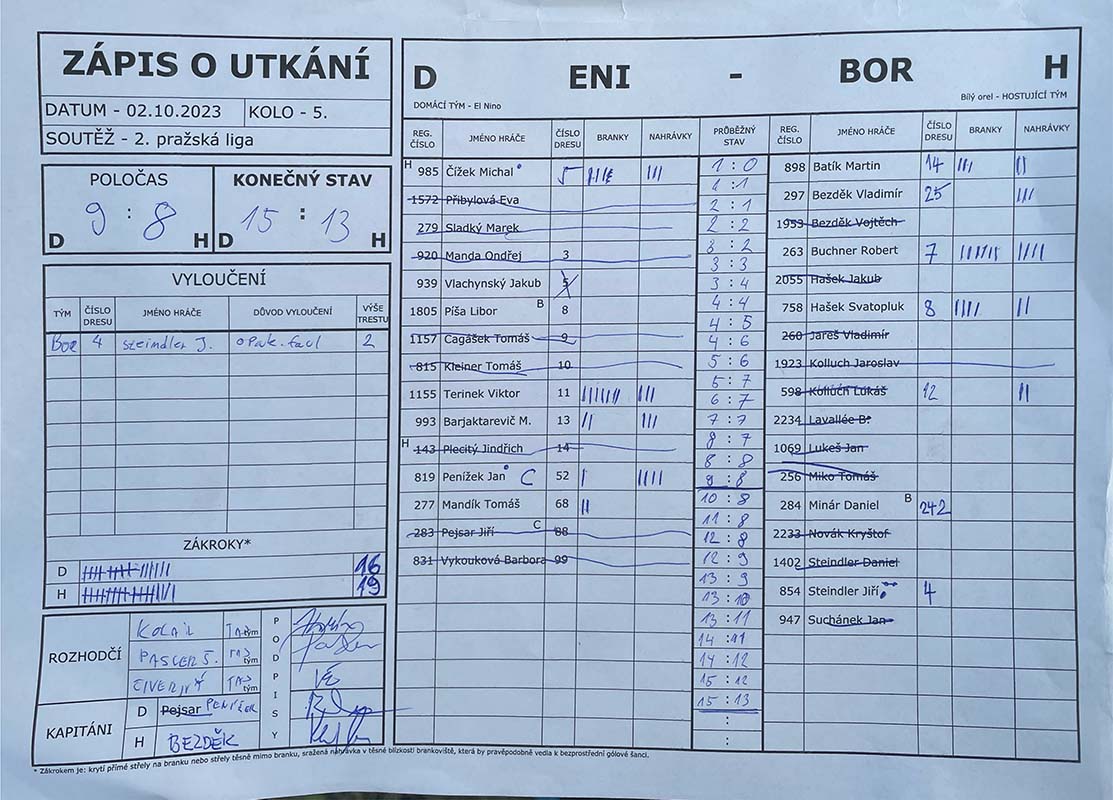 ZÁPIS O UTKÁNÍ
DATUM - 02.10.2023 KOLO - 5.
SOUTĚŽ - 2. pražská liga
POLOČAS KONEČNÝ STAV
9 : 8 15 : 13
D H D H
VYLOUČENÍ
TÝM ČÍSLO DRESU JMÉNO HRÁČE DŮVOD VYLOUČENÍ VÝŠE TRESTU
BOR 4 Steindler J. opak. faul 2
ZÁKROKY*
D 16
H 19
ROZHODČÍ
PODPISY
tým
tým
tým
KAPITÁNI
D Pejsar
H BEZDĚK
D ENI - BOR H
DOMÁCÍ TÝM - El Nino Bílý orel - HOSTUJÍCÍ TÝM
REG. ČÍSLO JMÉNO HRÁČE ČÍSLO DRESU BRANKY NAHRÁVKY PRŮBĚŽNÝ STAV REG. ČÍSLO JMÉNO HRÁČE ČÍSLO DRESU BRANKY NAHRÁVKY
H 985 Čížek Michal 5
1572 Přibylová Eva
279 Sladký Marek
920 Manda Ondřej 3
939 Vlachynský Jakub 5
1805 Píša Libor B 8
1157 Cagášek Tomáš 9
815 Kleiner Tomáš 10
1155 Terinek Viktor 11
993 Barjaktarevič M. 13
H 143 Plecitý Jindřich 14
819 Penížek Jan C 52
277 Mandík Tomáš 68
283 Pejsar Jiří C 88
831 Vykouková Barbora 99
1 : 0
1 : 1
2 : 1
2 : 2
3 : 2
3 : 3
3 : 4
4 : 4
4 : 5
4 : 6
5 : 6
5 : 7
6 : 7
7 : 7
8 : 7
8 : 8
9 : 8
10 : 8
11 : 8
12 : 8
12 : 9
13 : 9
13 : 10
13 : 11
14 : 11
14 : 12
15 : 12
15 : 13
:
:
898 Batík Martin 14
297 Bezděk Vladimír 25
1953 Bezděk Vojtěch
263 Buchner Robert 7
2055 Hašek Jakub
758 Hašek Svatopluk 8
260 Jareš Vladimír
1923 Kolluch Jaroslav
598 Kolluch Lukáš 12
2234 Lavallée B.
1069 Lukeš Jan
256 Miko Tomáš
284 Minár Daniel B 242
2233 Novák Kryštof
1402 Steindler Daniel
854 Steindler Jiří 4
947 Suchánek Jan
* Zákrokem je: krytí přímé střely na branku nebo střely těsně mimo branku, sražená nahrávka v těsné blízkosti brankoviště, která by pravěpodobně vedla k bezprostřední gólové šanci.